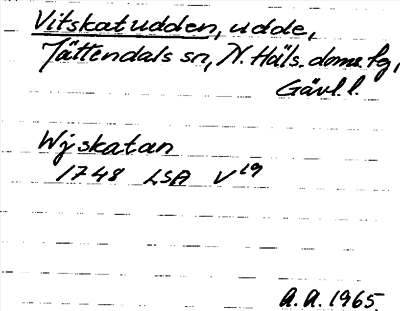 Vitskatudden, udde,
Jättendals sn, N. Häls. doms. fg,
Gävl. l.
Wijskatan
1748 LSA V19
A.A. 1965.